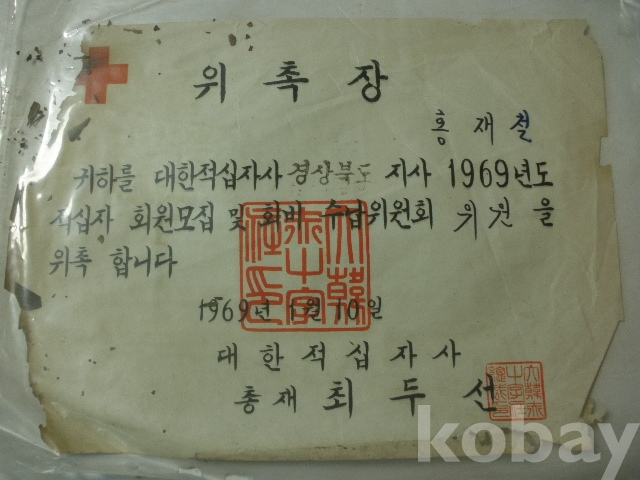 위촉장
홍재철
귀하를 대한적십자사 경상북도 지사 1969년도
적십자 회원모집 및 회비 수납위원회 위원을
위촉 합니다
1969년 1월 10일
대한적십자사
총재 최두선
kobay